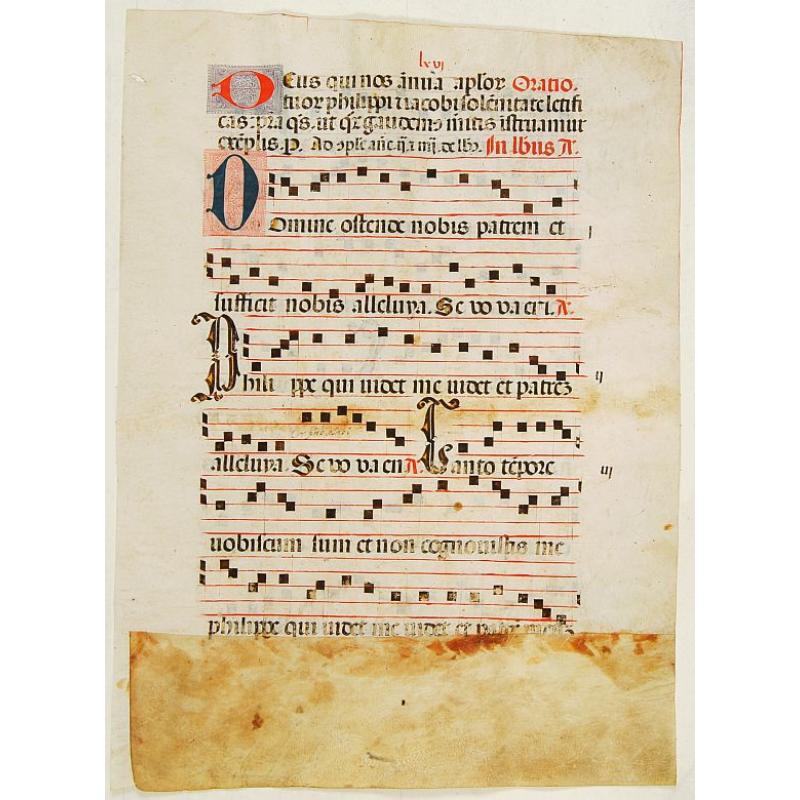 lxvj
Deus qui nos ãnua aplor Oratio.
tuor philippi et iacobi solẽnitate letifi
cas: pra q̃s. ut quor gaudem9 meritis istruamur
exẽplis. P. Ad In lbus A.
Domine ostende nobis patrem et j
sufficit nobis alleluya. Se vo va en. A.
Philippe qui videt me videt et patrẽ ij
alleluya. Se vo va en A. Tanto tẽpore iij
vobiscum sum et non cognovistis me
philippe qui videt me videt et patrẽ